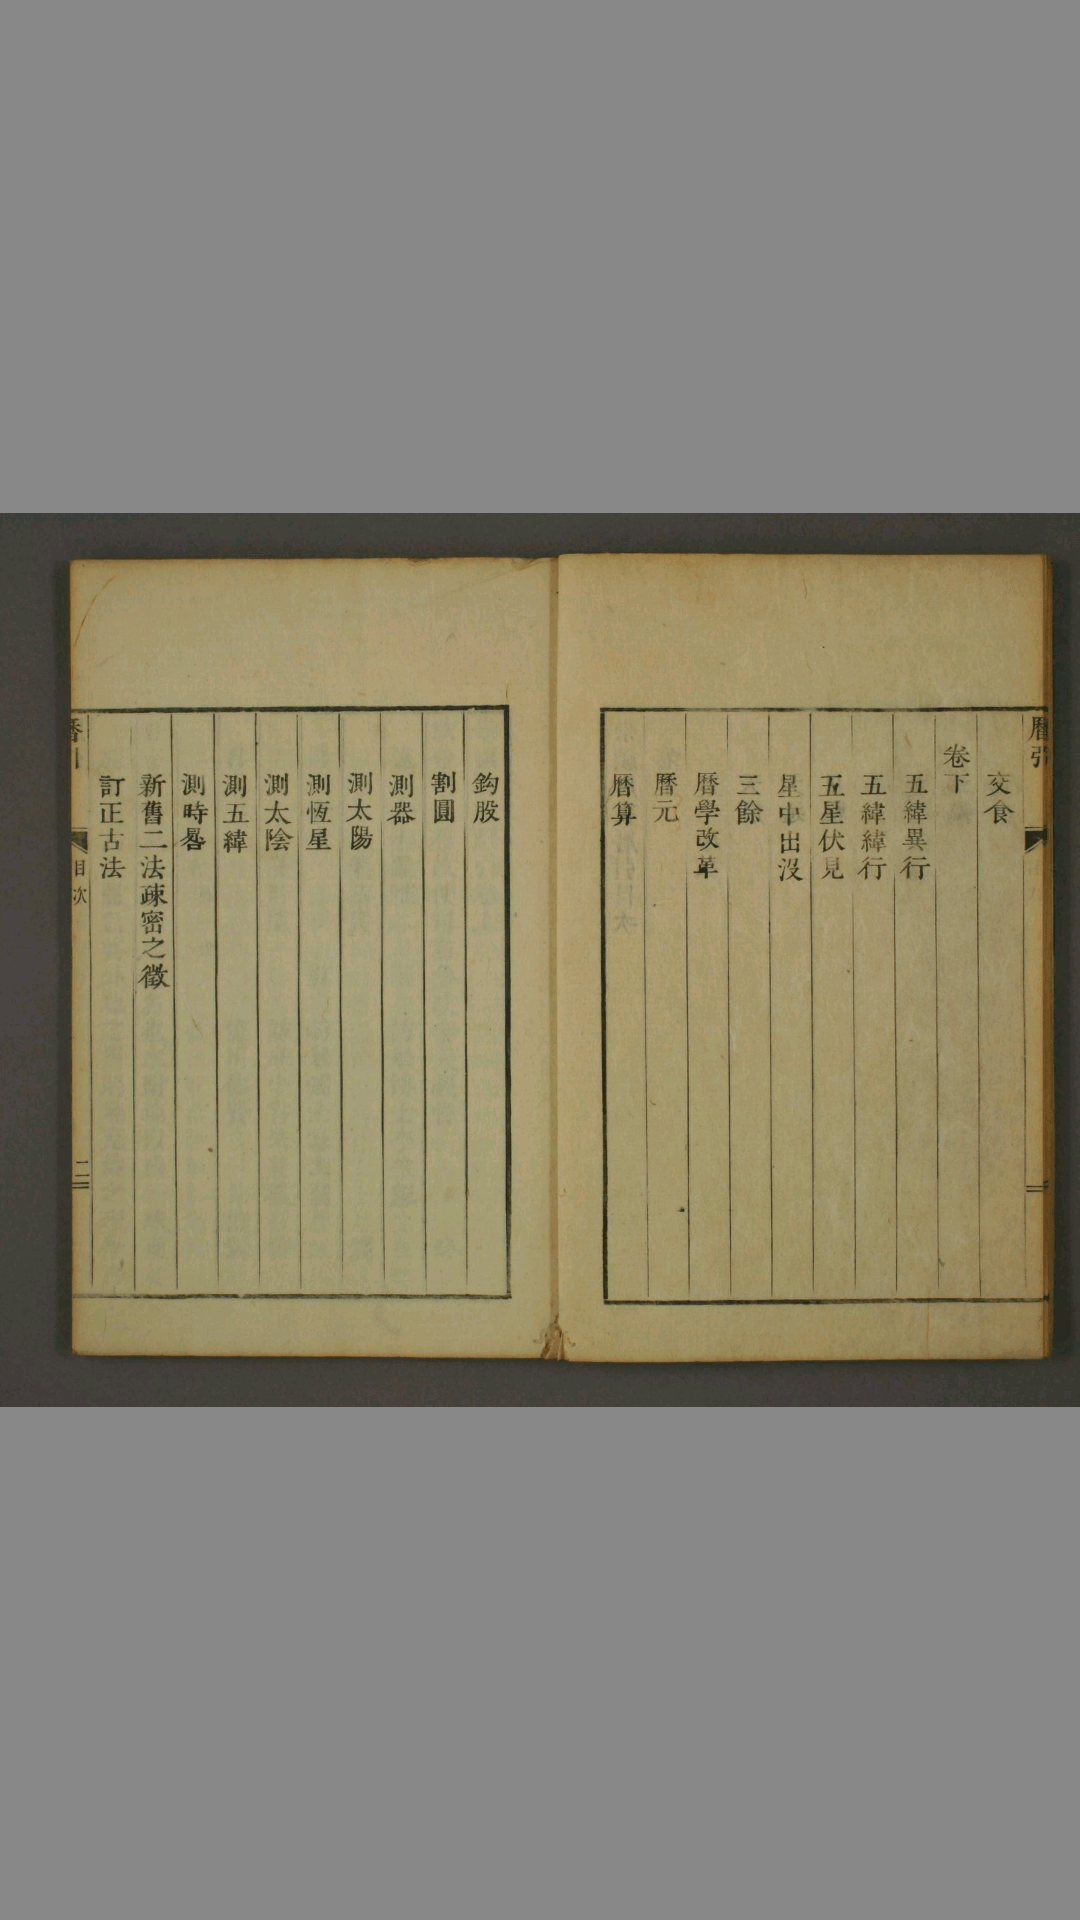 曆引
交食
卷下
五緯異行
五緯緯行
五星伏見
星中出没
三餘
曆學改革
曆元
曆算
鈎股
割圓
測器
測太陽
測恆星
測太陰
測五緯
測時晷
新舊二法疎密之徵
訂正古法
曆引
目次
二